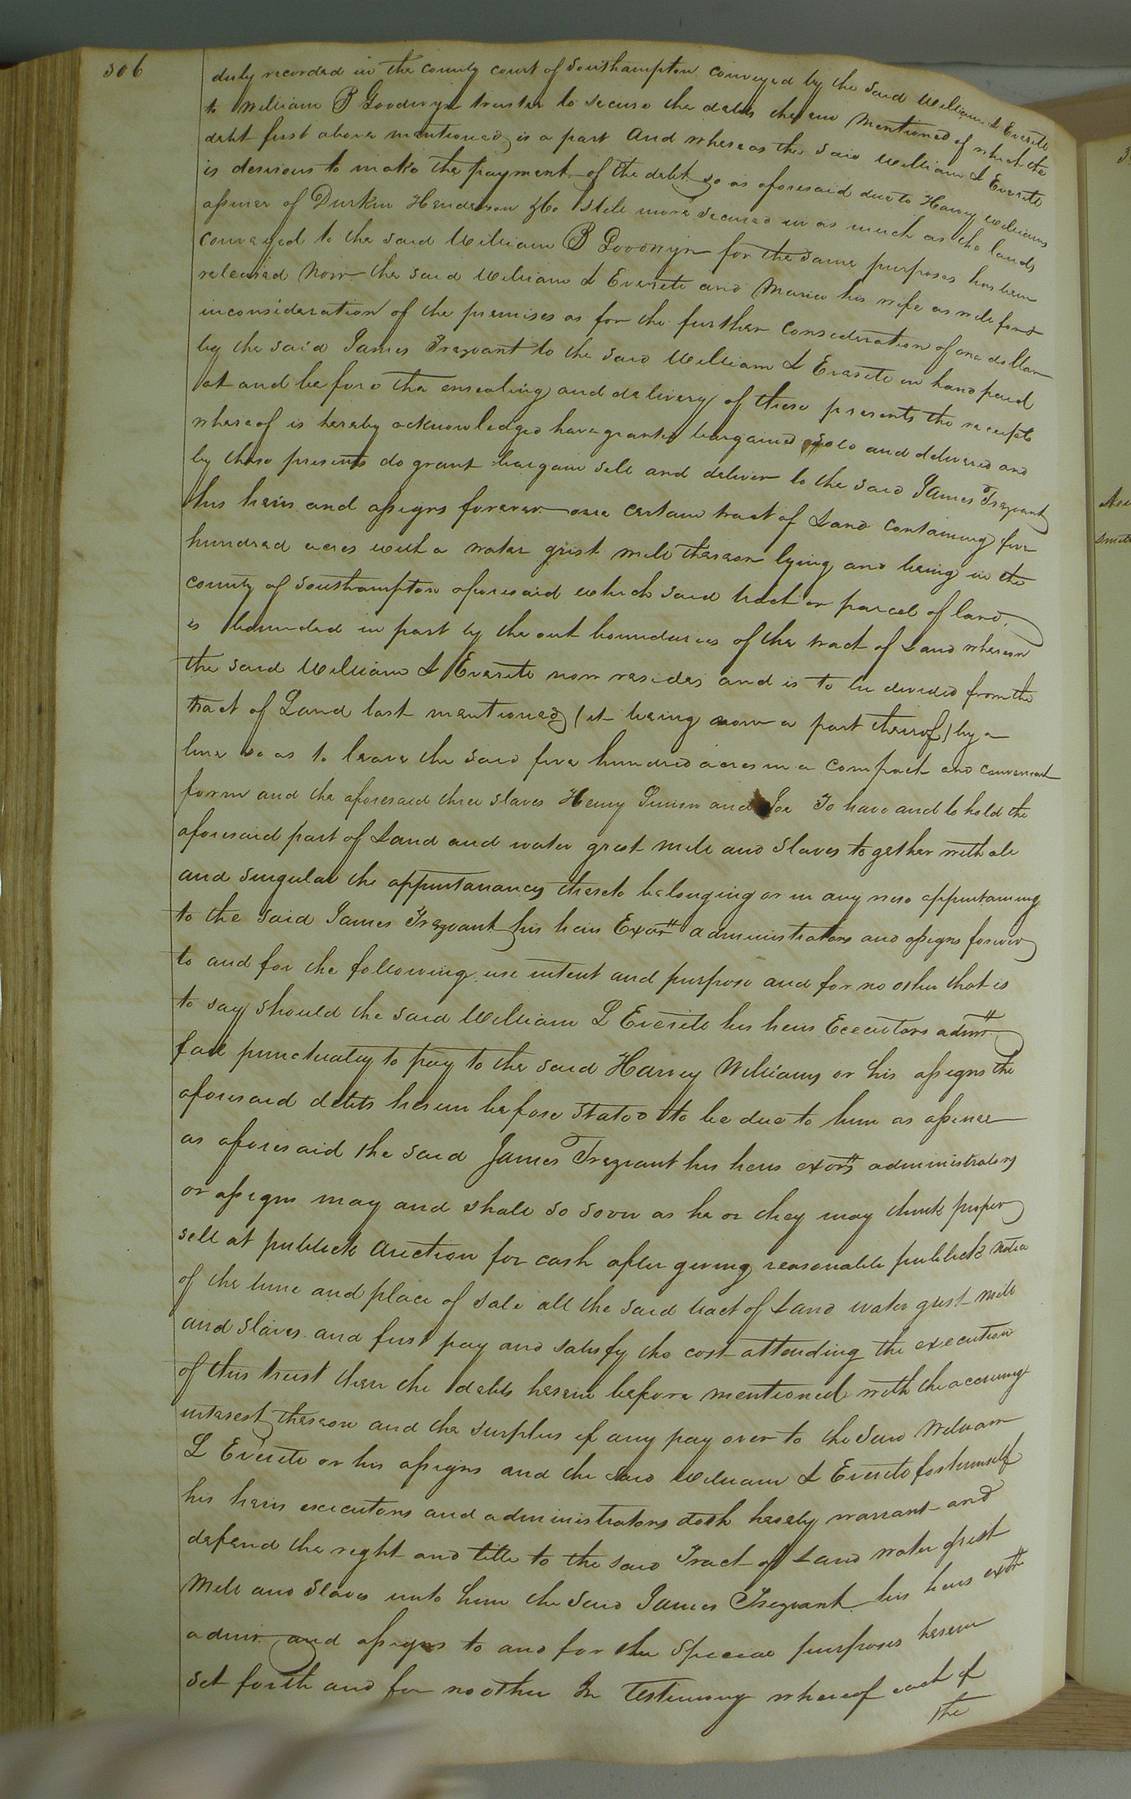 306
duly recorded in the county court of Southampton conveyed by the said William L Everite
to William B Goodwyn trustee to secure the debts therein mentioned of which the
debt first above mentioned is a part And whereas the said William L Everite
is desirous to make the payment of the debt so as aforesaid due to Harvey Williams
assinee of Durkin Henderson & Co still more secured in as much as the lands
conveyed to the said William B Goodwyn for the same purposes has been
released Now the said William L Everite and Maria his wife as well for &
inconsideration of the premises as for the further consideration of one dollar
by the said James Trezvant to the said William L Everite in hand paid
at and before the ensealing and delivery of these presents the receipt
whereof is hereby acknowledged have granted bargained sold and delivered and
by these presents do grant bargain sell and deliver to the said James Trezvant
his heirs and assigns forever one certain tract of Land containing five
hundred acres with a water grist mill thereon lying and being in the
county of Southampton aforesaid which said tract or parcel of land
is bounded in part by the out boundaries of the tract of Land whereon
the said William L Everite now resides and is to be divided from the
tract of Land last mentioned (it being now a part thereof) by a
line so as to leave the said five hundred acres in a compact and convenient
form and the aforesaid three slaves Henry and Joe To have and to hold the
aforesaid part of Land and water grist mill and slaves together with all
and singular the appurtanances thereto belonging or in any wise appurtaining
to the said James Trezvant his heirs Exors administrators and assigns forever
to and for the following use intent and purpose and for no other that is
to say should the said William L Everite his heirs Executors admrs
fail punctually to pay to the said Harvey Williams or his assigns the
aforesaid debts herein before stated to be due to him as assinee
as aforesaid the said James Trezvant his heirs exors administrators
or assigns may and shall so soon as he or they may think proper
sell at publick auction for cash after giving reasonable publick notice
of the time and place of sale all the said tract of Land water grist mill
and slaves and first pay and satisfy the cost attending the execution
of this trust then the debts herein before mentioned with the accruing
interest thereon and the surplus if any pay over to the said William
L Everite or his assigns and the said William L Everite for himself
his heirs executors and administrators doth hereby warrant and
defend the right and title to the said Tract of Land water grist
Mill and Slaves unto him the said James Trezvant his heirs exors
admrs and assigns to and for the special purposes herein
set forth and for no other In Testimony whereof each of
the